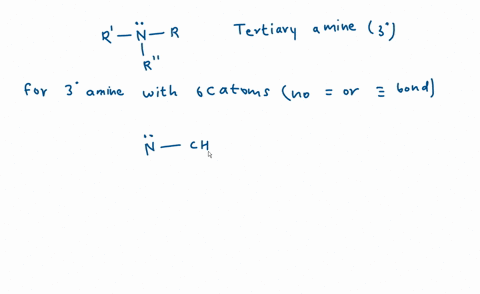 R' — N̈ — R Tertiary amine (3°)
|
R"
for 3° amine with 6 C atoms (no = or ≡ bond)
N̈ — CH